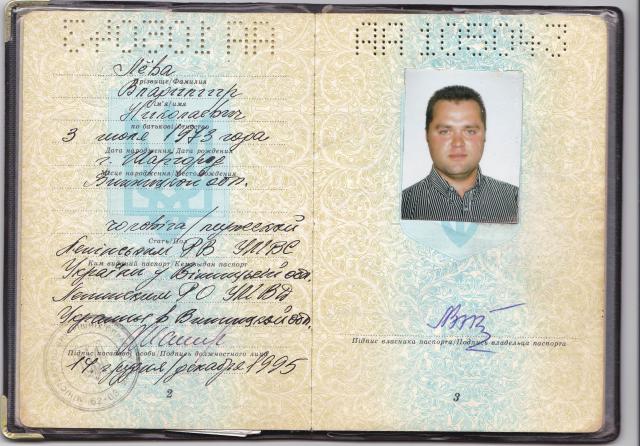 АА 105043
Лёва
Прізвище/Фамилия
Владимир
Ім'я/имя
Николаевич
по батькові/отчество
3 июля 1973 года
Дата народження/Дата рождения
г. Шаргород
Місце народження/Место рождения
Винницкой обл.
чоловіча/мужской
Стать/Пол
Ленінським РВ УМВС
Ким виданий паспорт/Кем выдан паспорт
України у Вінницькій обл.
Ленинским РО УМВД
Украины в Винницкой обл.
Підпис посадової особи/Подпись должностного лица
14 грудня/декабря 1995
2
АА 105043
Підпис власника паспорта/Подпись владельца паспорта
3